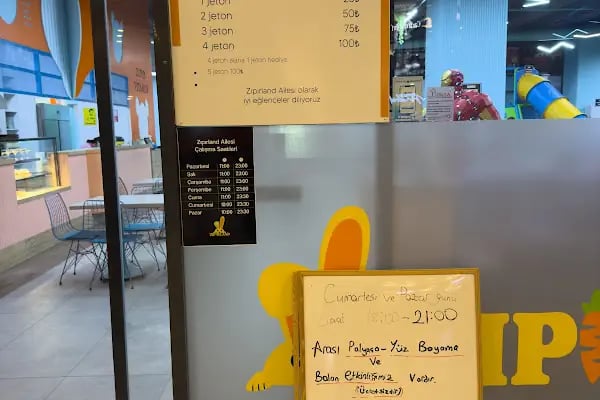 1 jeton
2 jeton 50₺
3 jeton 75₺
4 jeton 100₺
4 jeton alana 1 jeton hediye
5 jeton 100₺
Zıpırland Ailesi olarak
iyi eğlenceler diliyoruz
Zıpırland Ailesi
Çalışma Saatleri
Pazartesi 11:00 23:00
Salı 11:00 23:00
Çarşamba 11:00 23:00
Perşembe 11:00 23:00
Cuma 11:00 23:30
Cumartesi 10:00 23:30
Pazar 10:00 23:30
Cumartesi ve Pazar günü
Saat ~21:00
Arası Palyaço-Yüz Boyama
ve
Balon Etkinliğimiz Vardır.
(Ücretsizdir)
IP